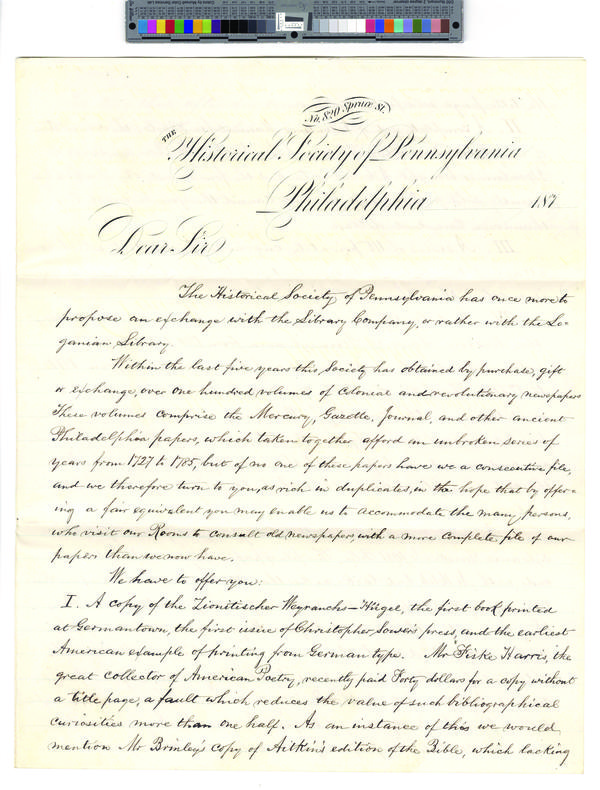 No. 820 Spruce St.
THE
Historical Society of Pennsylvania
Philadelphia 187
Dear Sir
The Historical Society of Pennsylvania has once more to
propose an exchange with the Library Company, or rather with the Lo-
ganian Library.
Within the last five years this Society has obtained by purchase, gift
or exchange, over one hundred volumes of colonial and revolutionary newspapers
These volumes comprise the Mercury, Gazette, Journal, and other ancient
Philadelphia papers, which taken together afford an unbroken series of
years from 1727 to 1785, but of no one of these papers have we a consecutive file,
and we therefore turn to you, as rich in duplicates, in the hope that by offer-
ing a fair equivalent you may enable us to accommodate the many persons,
who visit our Rooms to consult old newspapers, with a more complete file of our
papers than we now have.
We have to offer you:
I. A copy of the Zionitischer Weyrauchs-Hügel, the first book printed
at Germantown, the first issue of Christopher Sower's press, and the earliest
American example of printing from German type. Mr Fiske Harris, the
great collector of American Poetry, recently paid Forty dollars for a copy without
a title page, a fault which reduces the value of such bibliographical
curiosities more than one half. As an instance of this we would
mention Mr Brinley's copy of Aitkin's edition of the Bible, which lacking